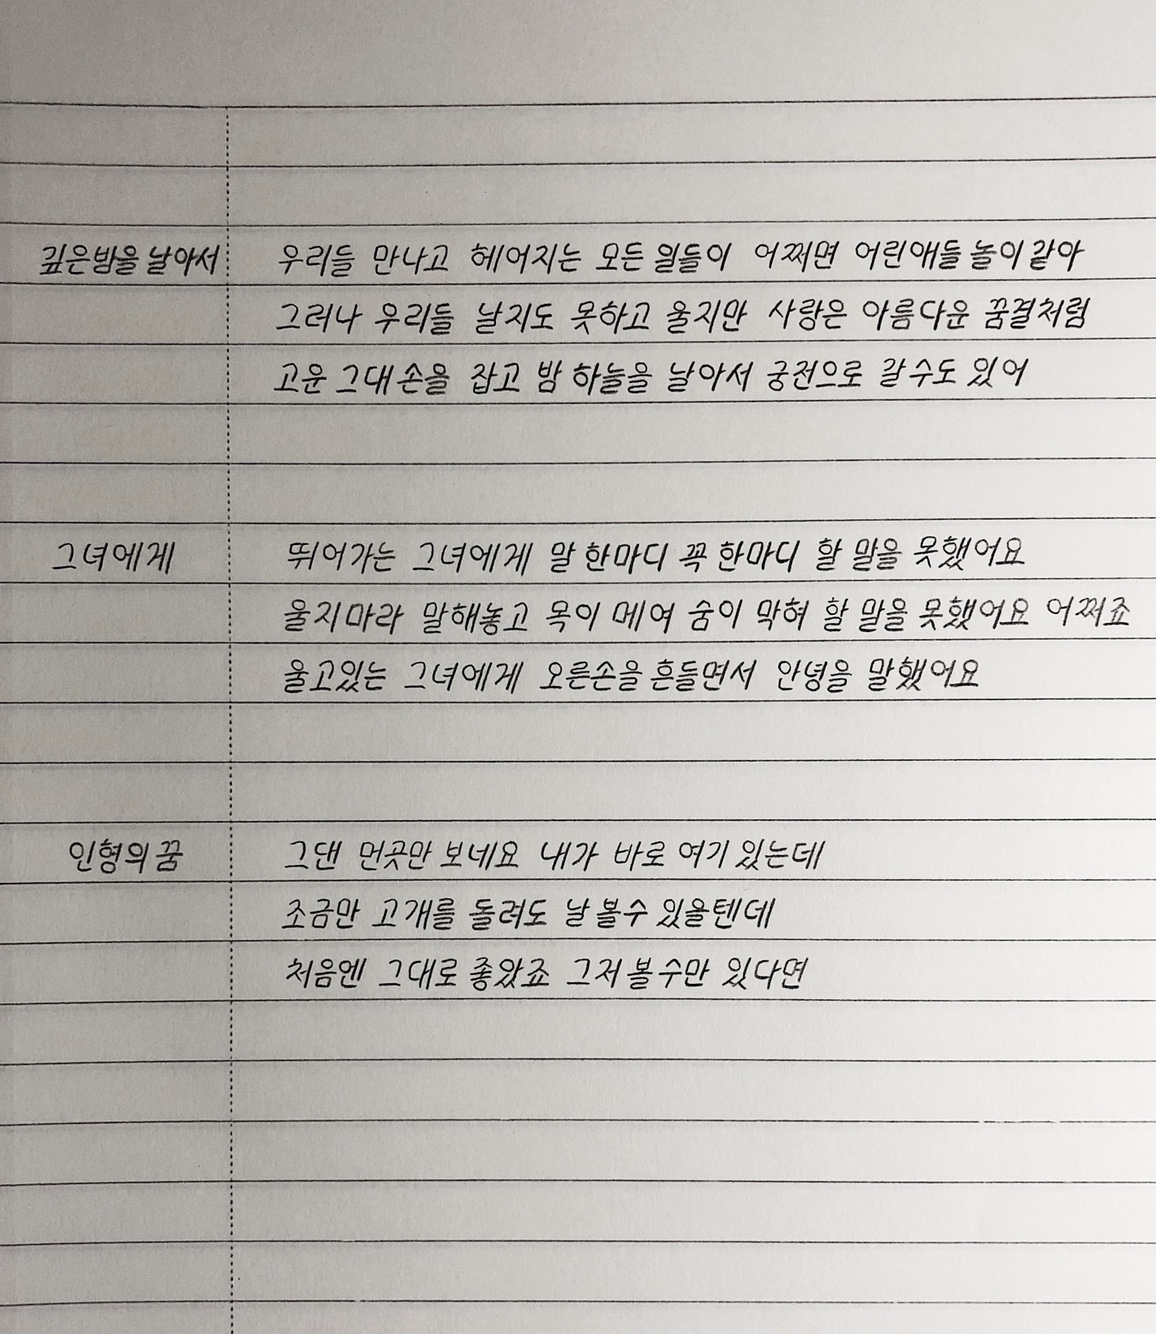 깊은밤을 날아서 우리들 만나고 헤어지는 모든 일들이 어쩌면 어린애들 놀이같아
그러나 우리들 날지도 못하고 울지만 사랑은 아름다운 꿈결처럼
고운 그대 손을 잡고 밤 하늘을 날아서 궁전으로 갈 수도 있어
그녀에게 뛰어가는 그녀에게 말 한마디 꼭 한마디 할 말을 못했어요
울지마라 말해놓고 목이 메여 숨이 막혀 할 말을 못했어요 어쩌죠
울고있는 그녀에게 오른손을 흔들면서 안녕을 말했어요
인형의 꿈 그댄 먼곳만 보네요 내가 바로 여기 있는데
조금만 고개를 돌려도 날 볼수 있을텐데
처음엔 그대로 좋았죠 그저 볼 수만 있다면